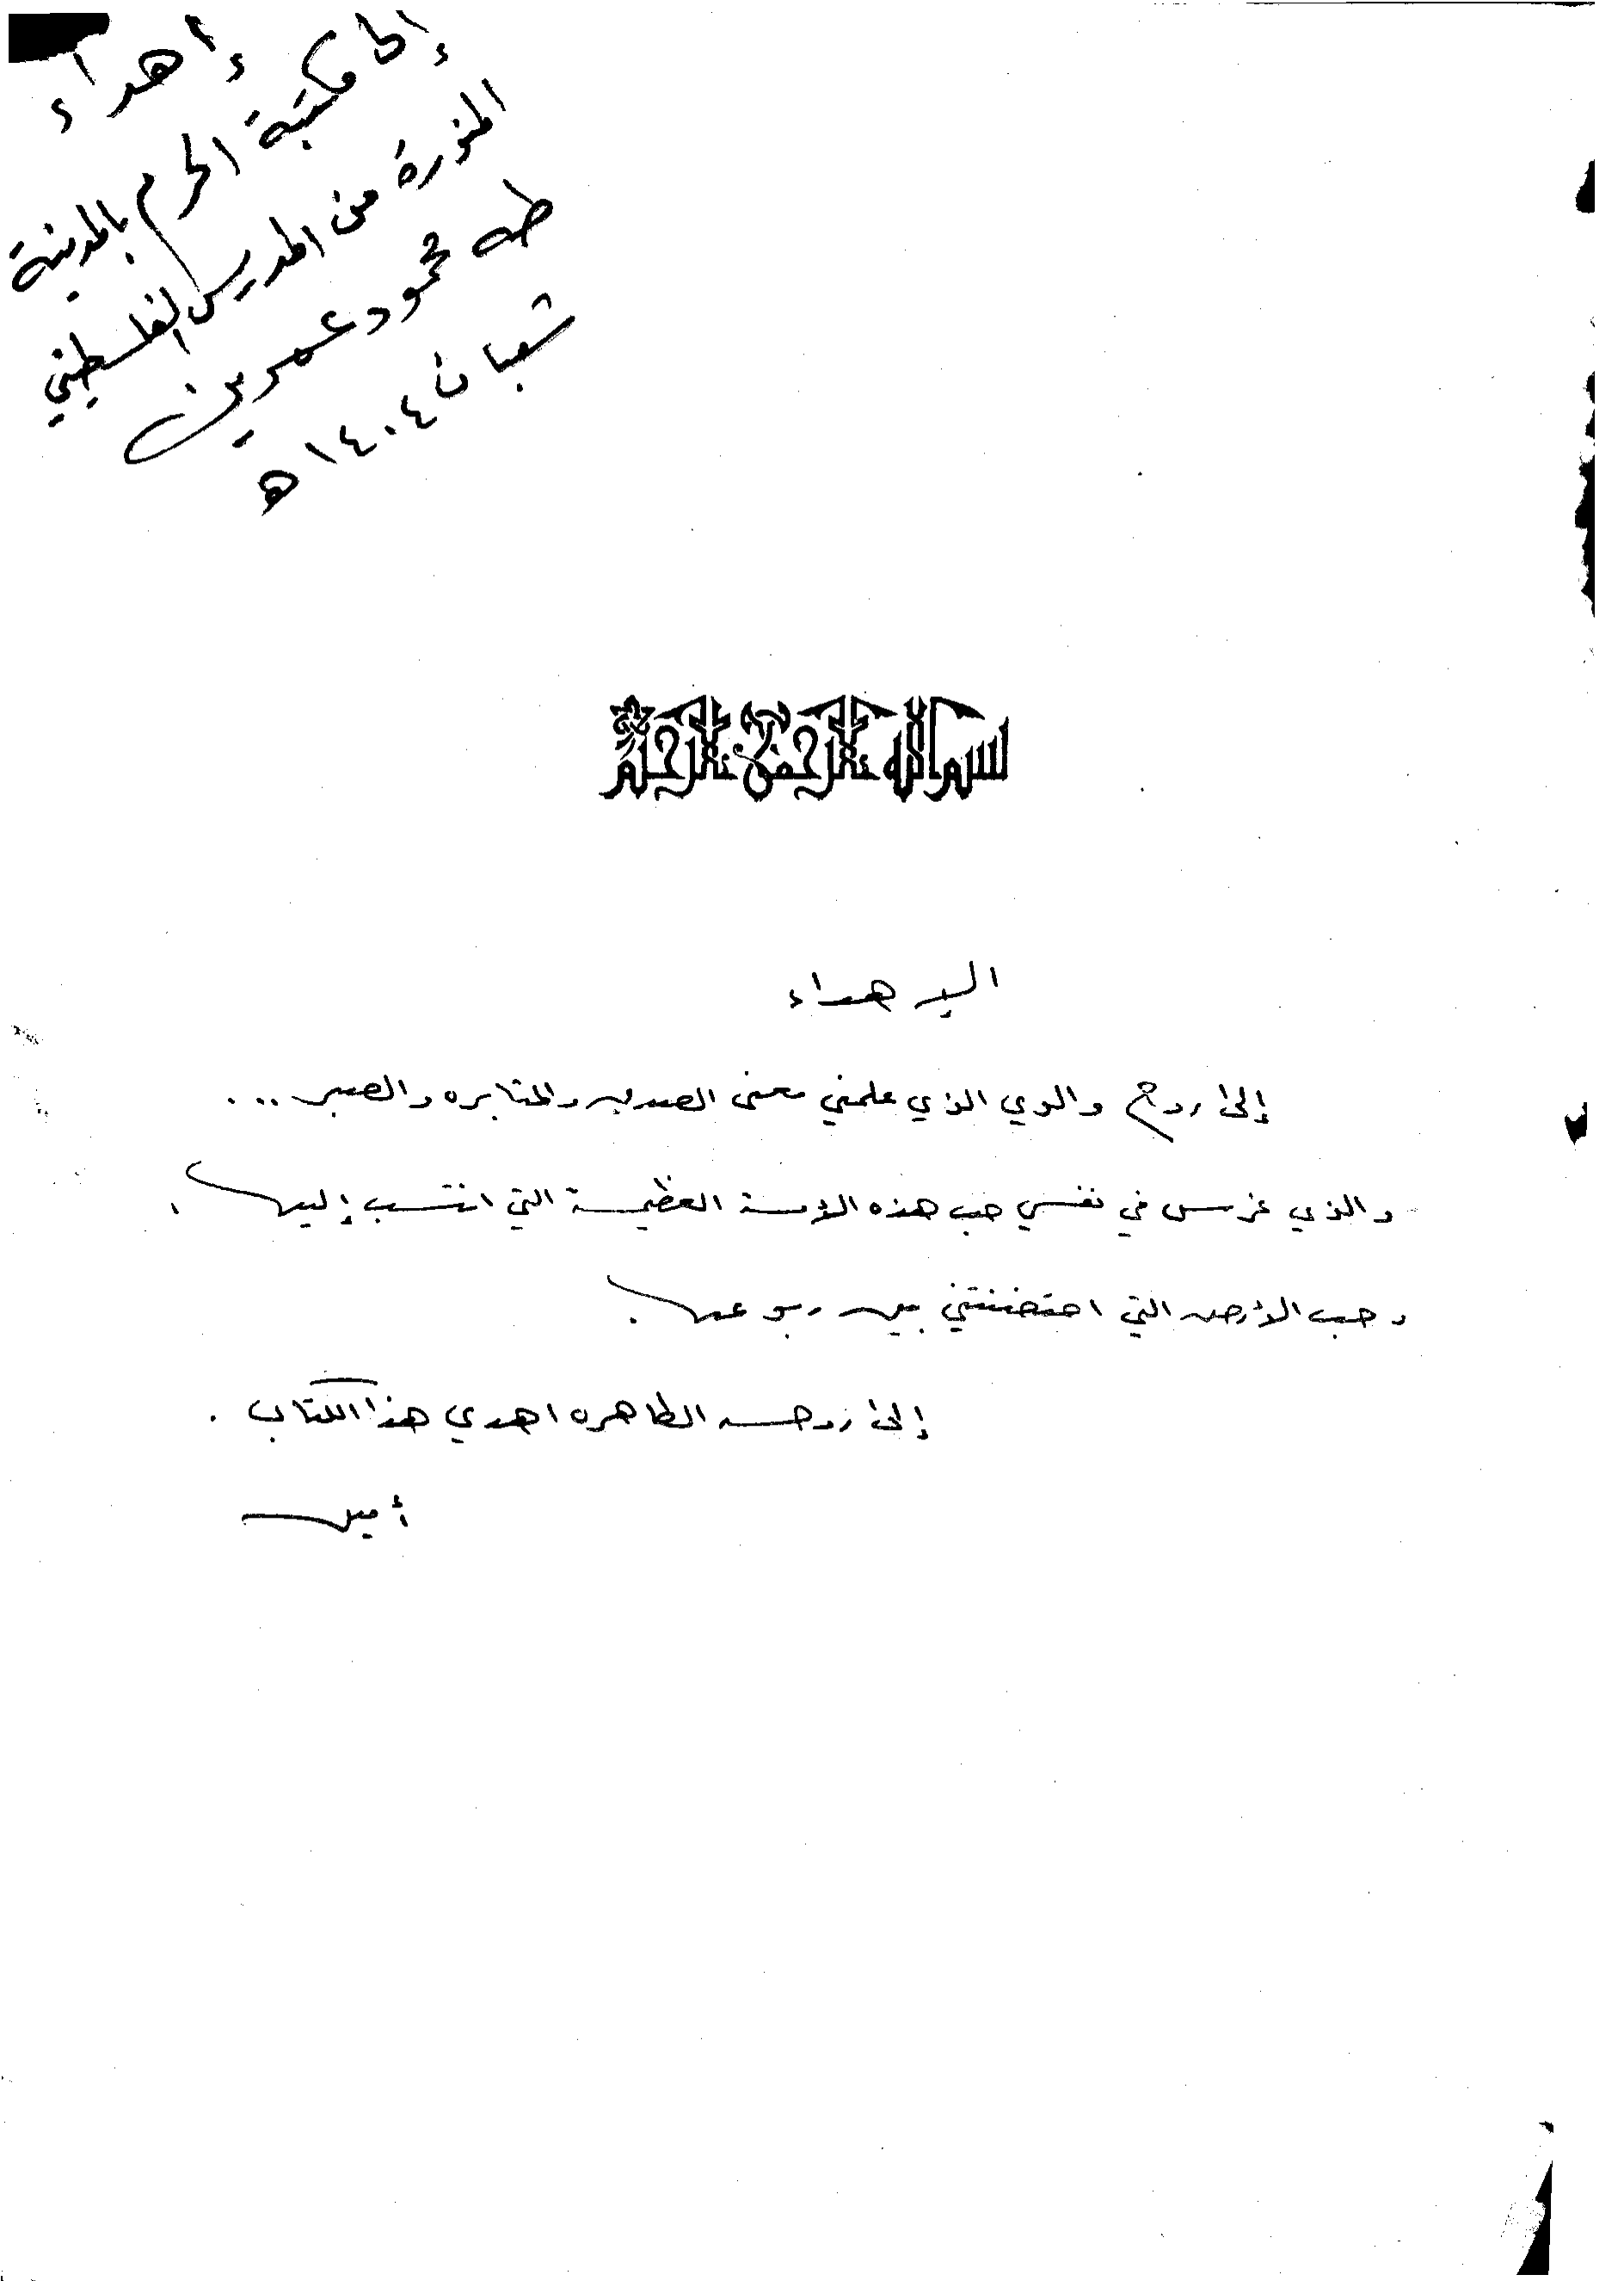 إهداء
إلى مكتبة الحرم بالمدينة
المنورة من المدرس الفلسطيني
طه محمود عمرين
شعبان ١٤٠٤ ه
بسم الله الرحمن الرحيم
الإهداء
إلى روح والدي الذي علمني معنى الصدق والمثابره والصبر ...
والذي غرس في نفسي حب هذه الأمة العظيمة التي انتسب إليها ،
وحب الأرض التي احتضنتني بين ربوعها .
إلى روحه الطاهره اهدي هذا الكتاب .
أمين